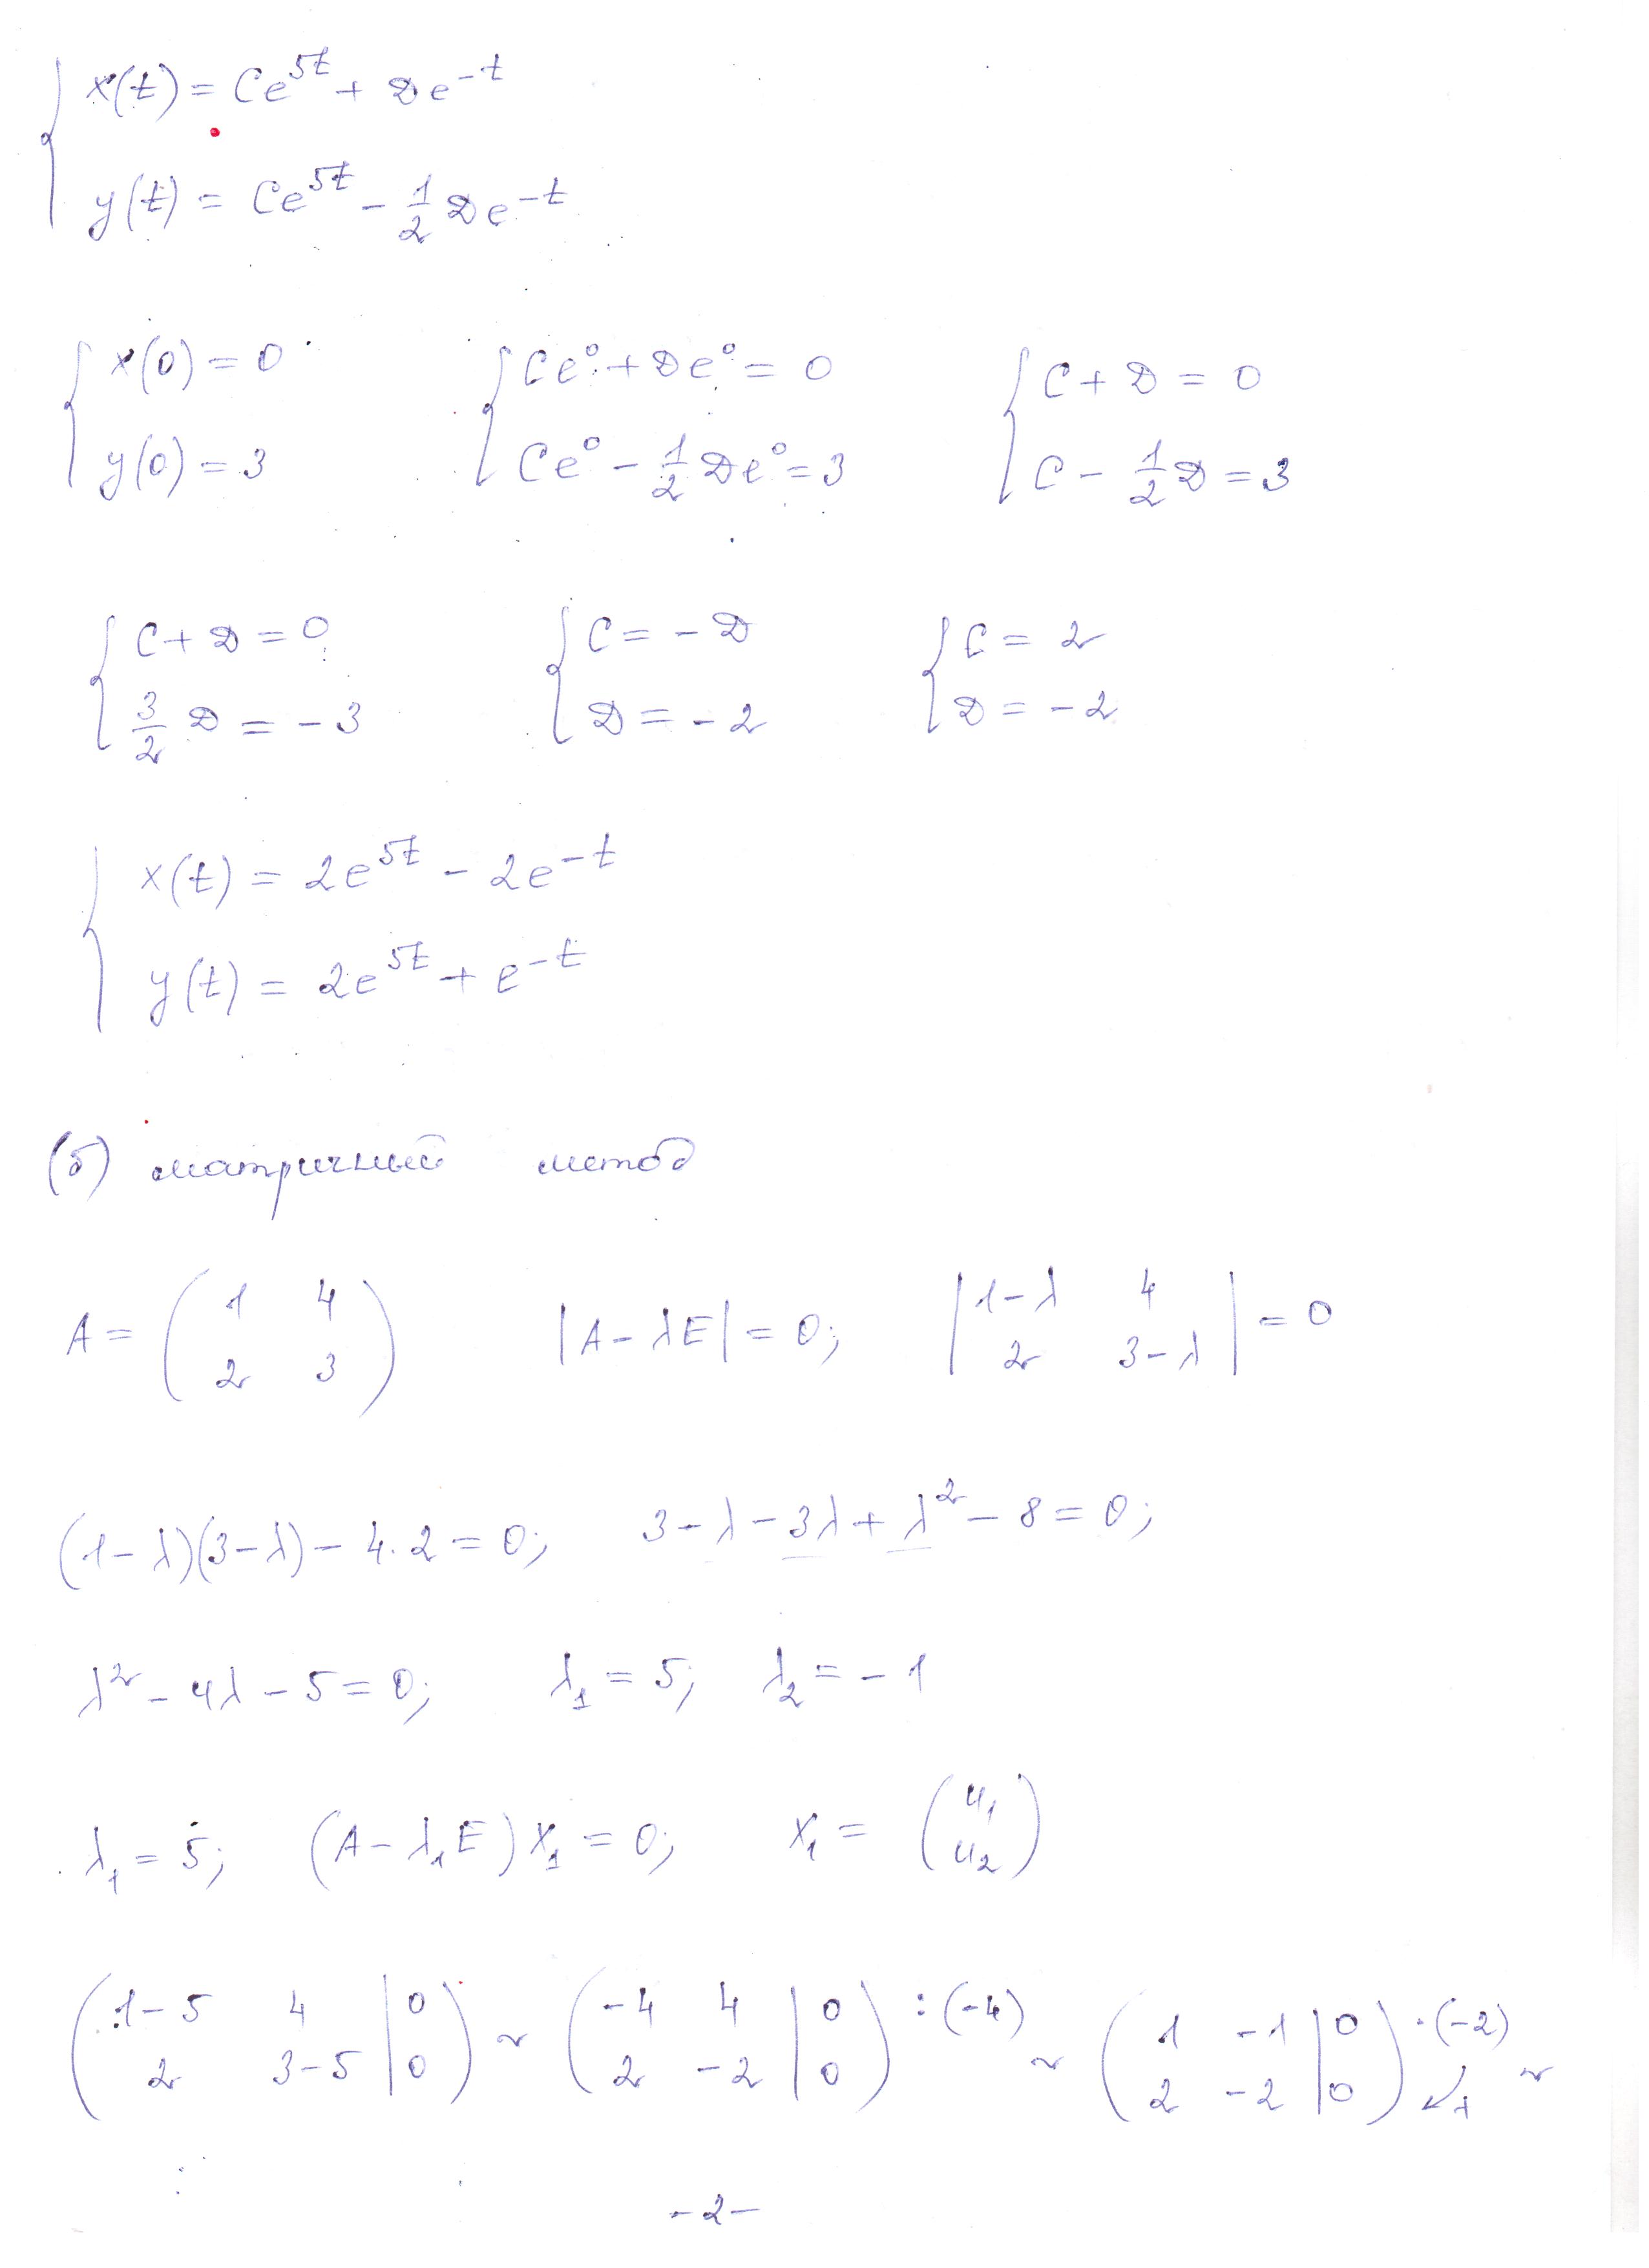 { x(t) = Ce^{5t} + De^{-t}
y(t) = Ce^{5t} - 1/2 De^{-t}
{ x(0) = 0 { Ce^0 + De^0 = 0 { C + D = 0
y(0) = 3 Ce^0 - 1/2 De^0 = 3 C - 1/2 D = 3
{ C + D = 0 { C = - D { C = 2
3/2 D = - 3 D = - 2 D = - 2
{ x(t) = 2e^{5t} - 2e^{-t}
y(t) = 2e^{5t} + e^{-t}
(б) матричный метод
A = ( 1 4 ; 2 3 ) |A - λE| = 0; | 1-λ 4 ; 2 3-λ | = 0
(1-λ)(3-λ) - 4·2 = 0; 3 - λ - 3λ + λ² - 8 = 0;
λ² - 4λ - 5 = 0; λ₁ = 5; λ₂ = - 1
λ₁ = 5; (A - λ₁E) X₁ = 0; X₁ = ( u₁ ; u₂ )
( 1-5 4 | 0 ; 2 3-5 | 0 ) ~ ( -4 4 | 0 ; 2 -2 | 0 ) :(-4) ~ ( 1 -1 | 0 ; 2 -2 | 0 ) ·(-2) ↙+ ~
- 2 -